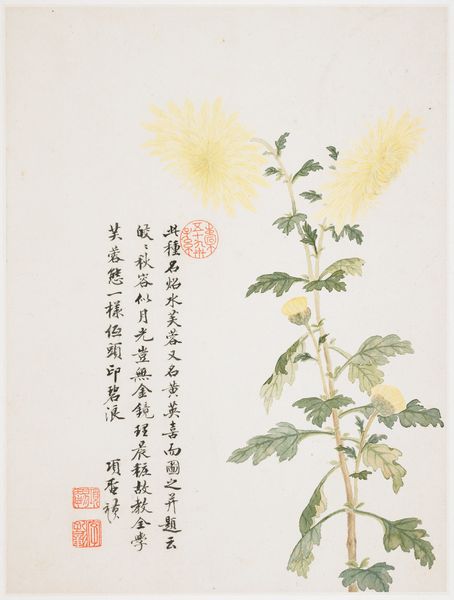 此種名炤水芙蓉又名黃英喜而圖之并題云
皎〻秋容似月光豈無金鏡理晨粧故教全學
芙蓉態一樣低頭印碧浪
項